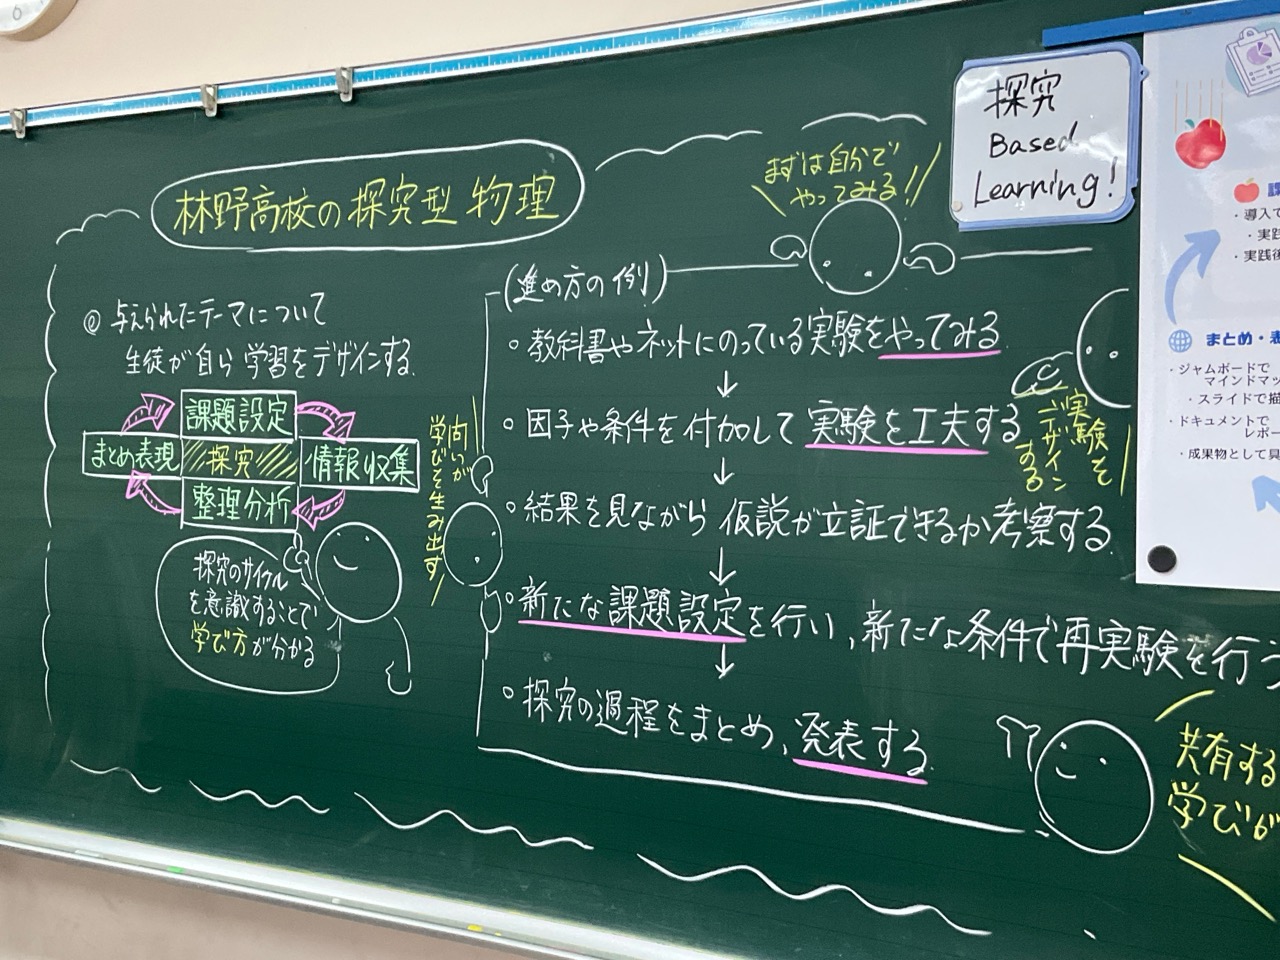 林野高校の探究型 物理
◎ 与えられたテーマについて
生徒が自ら学習をデザインする.
課題設定
まとめ表現
探究
情報収集
整理分析
探究のサイクル
を意識することで
学び方が分かる
問いが
学びを生み出す
まずは自分で
やってみる!!
(進め方の例)
○ 教科書やネットにのっている実験をやってみる
↓
○ 因子や条件を付加して 実験を工夫する
↓
○ 結果を見ながら 仮説が立証できるか考察する.
↓
○ 新たな課題設定を行い、新たな条件で再実験を行う
↓
○ 探究の過程をまとめ、発表する.
実験を
デザイン
する
共有する
学びが
探究
Based
Learning!
・導入で
・実践
・実践後
まとめ・表
・ジャムボードで
マインドマッ
・スライドで描
・ドキュメントで
レポー
・成果物として具
6